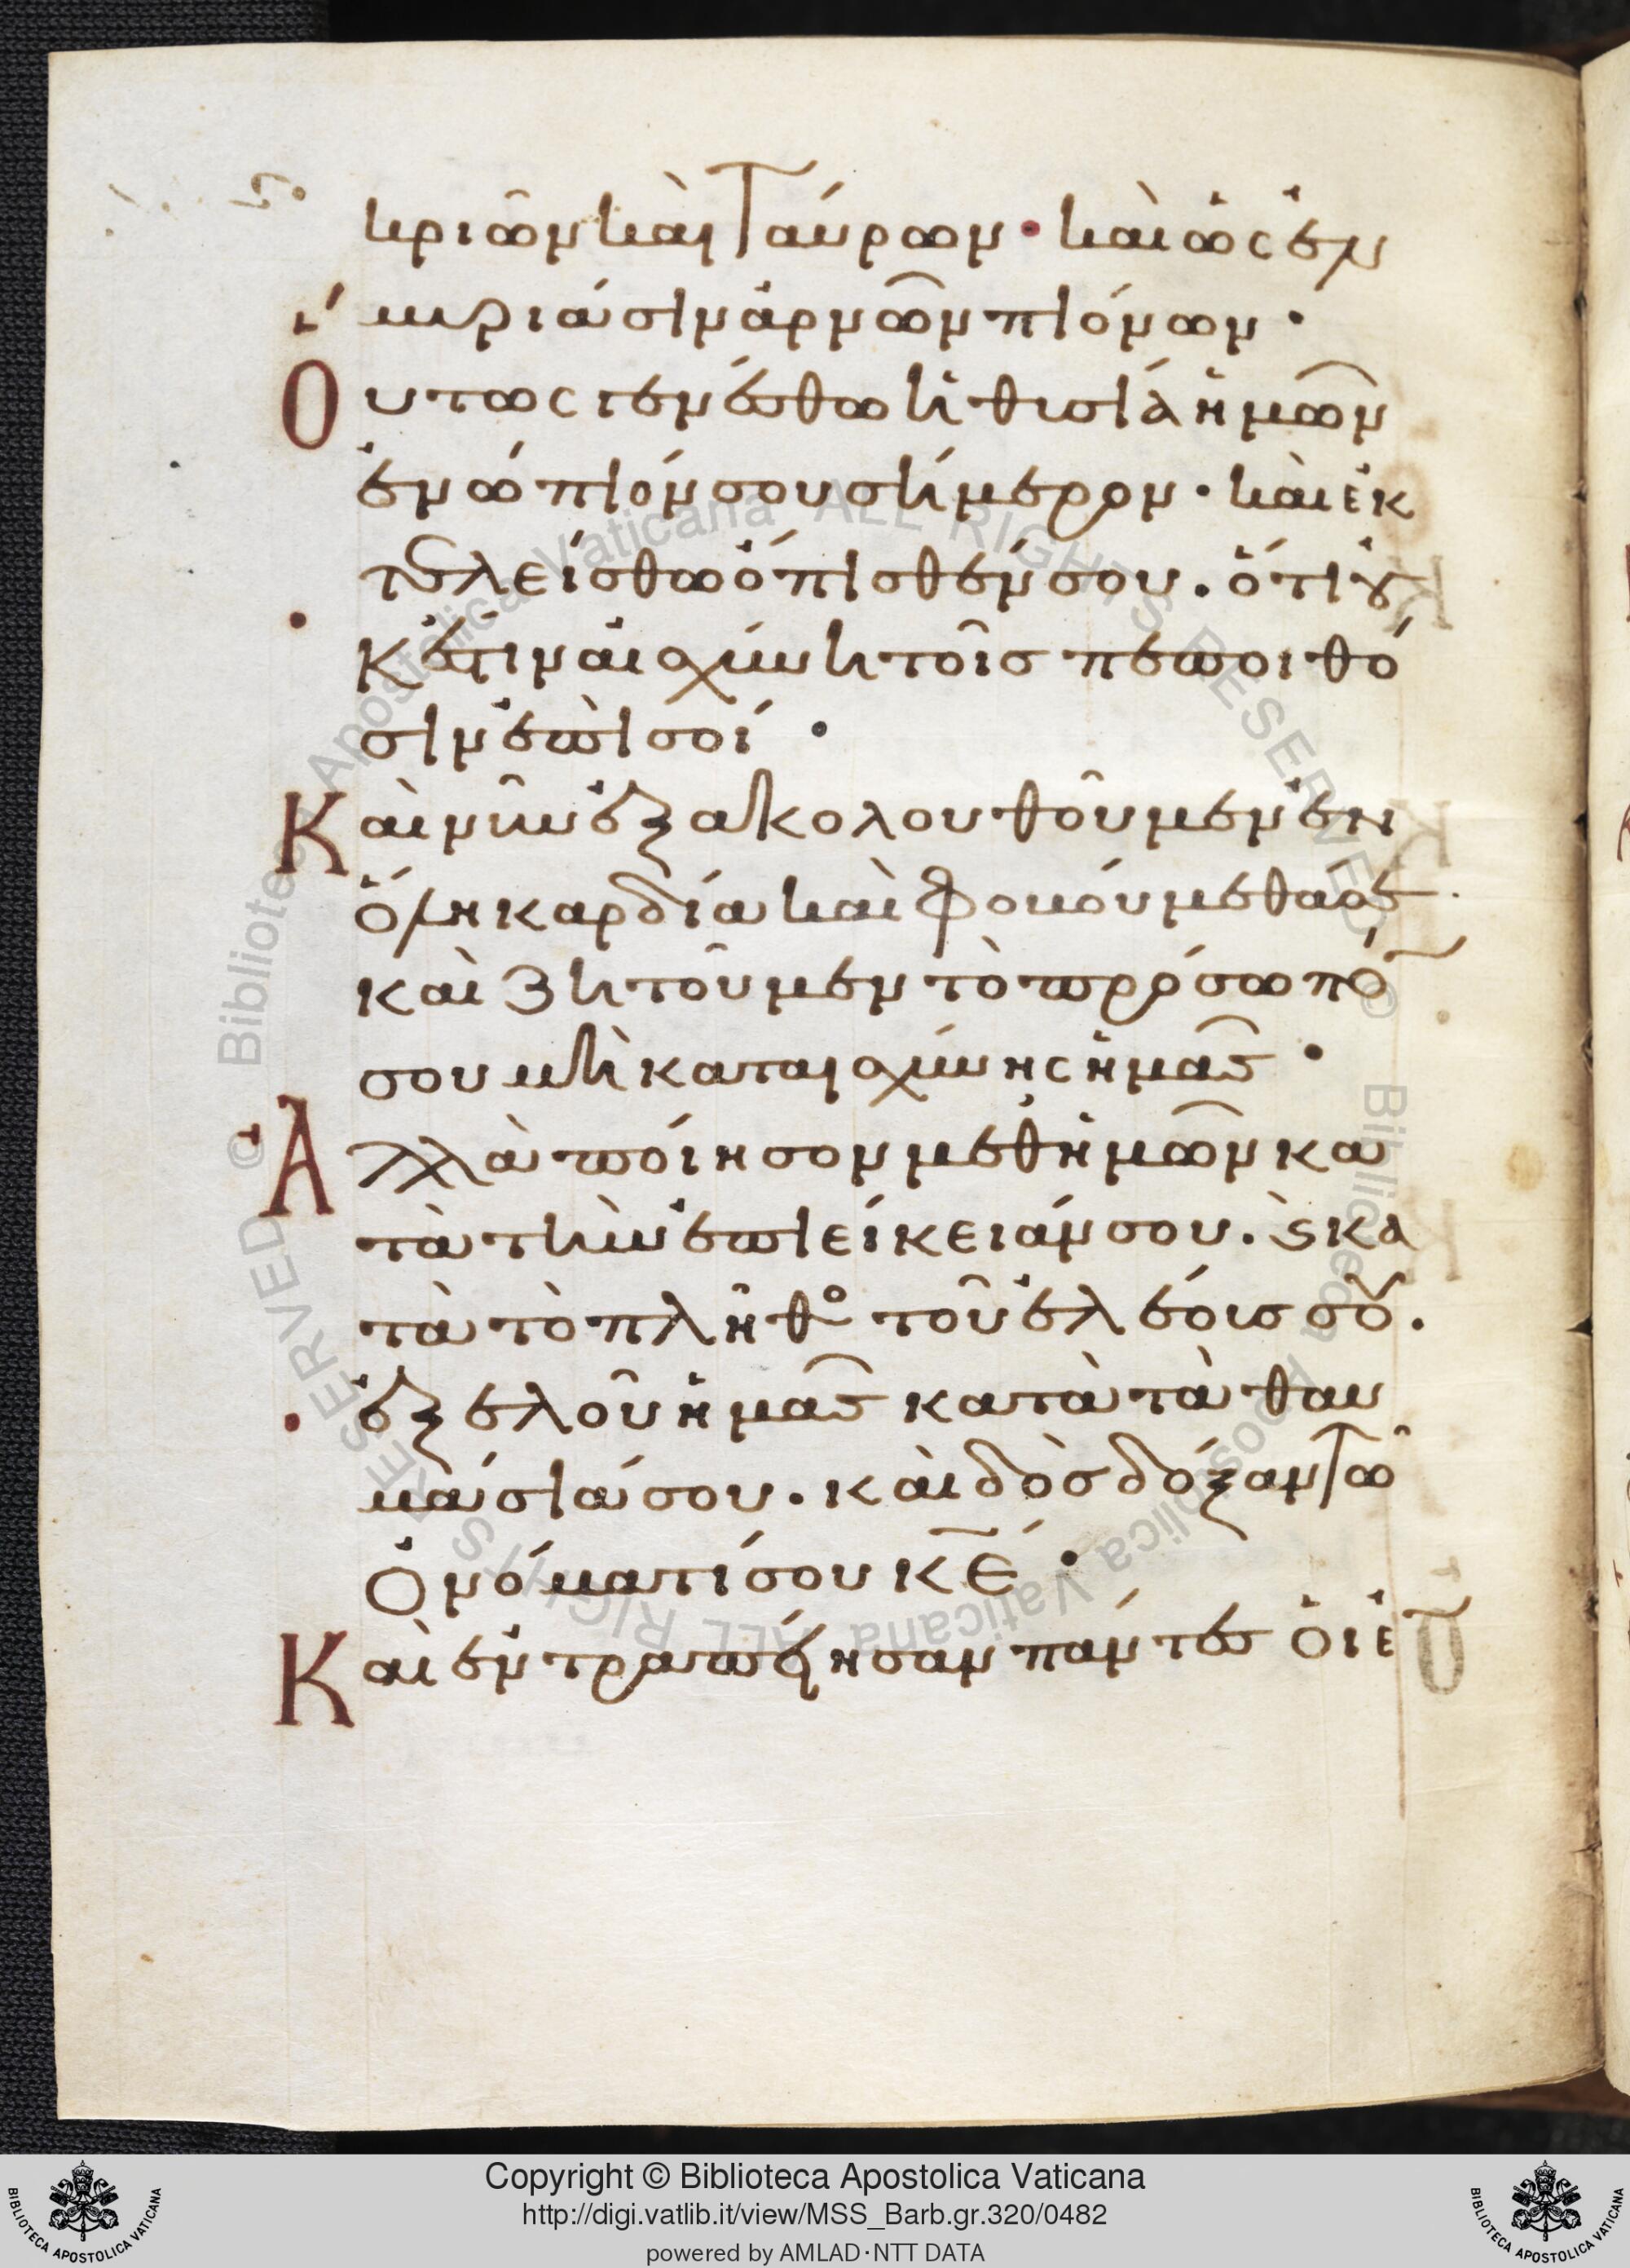 κριῶν καὶ ταύρων · καὶ ὡς ἐν
μυριάσιν ἀρνῶν πιόνων ·
Ουτως γενέσθω ἡ θυσία ἡμῶν
ἐνώπιόν σου σήμερον · καὶ ἐκ
τελείσθω ὄπισθέν σου . ὅτι οὐ
κ ἔστιν αἰσχύνη τοῖς πεποιθό
σιν ἐπὶ σοί ·
Καὶ νῦν ἐξακολουθοῦμεν ἐν
ὅλη καρδία καὶ φοβούμεθά σε
καὶ ζητοῦμεν τὸ πρόσωπό
σου μὴ καταισχύνης ἡμᾶς ·
Ἀλλὰ ποίησον μεθ ἡμῶν κα
τὰ τὴν ἐπιείκειάν σου . ϗ κα
τὰ τὸ πλῆθος τοῦ ἐλέους σου .
ἐξελοῦ ἡμᾶς κατὰ τὰ θαυ
μάσιά σου . καὶ δὸς δόξαν τῶ
ὀνόματί σου κ̅ε̅ ·
Καὶ ἐντραπείησαν πάντες οἱ ἐ
Copyright © Biblioteca Apostolica Vaticana
http://digi.vatlib.it/view/MSS_Barb.gr.320/0482
powered by AMLAD·NTT DATA
BIBLIOTECA APOSTOLICA VATICANA
BIBLIOTECA APOSTOLICA VATICANA